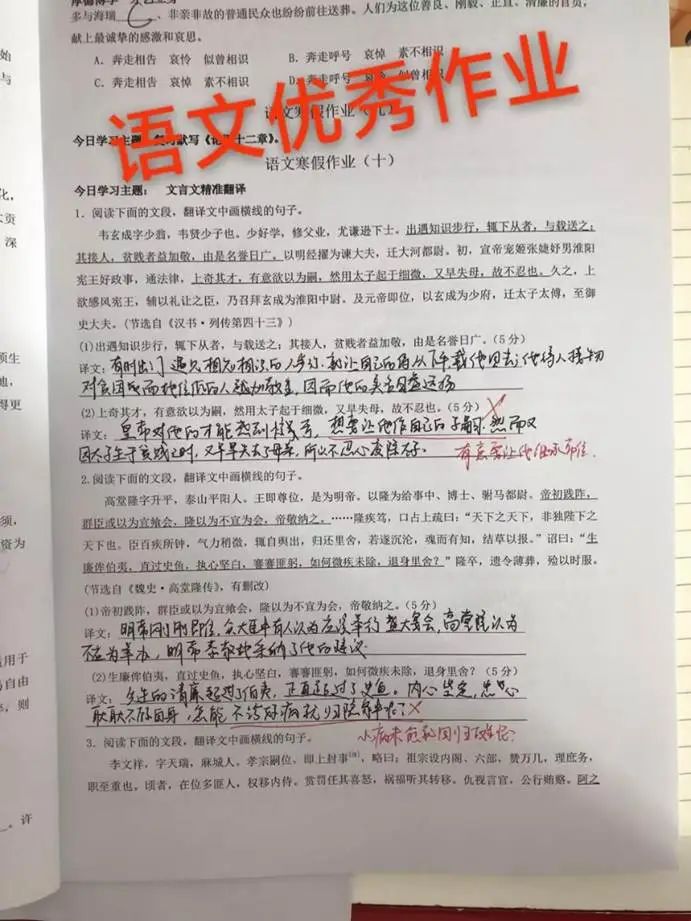 多与海瑞 、非亲非故的普通民众也纷纷前往送葬。人们为这位善良、刚毅、正直、清廉的官员,
献上最诚挚的感激和哀思。
A. 奔走相告 哀怜 似曾相识 B. 奔走呼号 哀悼 素不相识
C. 奔走相告 哀悼 素不相识 D. 奔走呼号 似曾相识
语文优秀作业
语文寒假作业(九)
今日学习主题: 默写《论语十二章》。
语文寒假作业(十)
今日学习主题: 文言文精准翻译
1. 阅读下面的文段,翻译文中画横线的句子。
韦玄成字少翁,韦贤少子也。少好学,修父业,尤谦逊下士。出遇知识步行,辄下从者,与载送之;
其接人,贫贱者益加敬,由是名誉日广。以明经擢为谏大夫,迁大河都尉。初,宣帝宠姬张婕妤男淮阳
宪王好政事,通法律,上奇其才,有意欲以为嗣,然用太子起于细微,又早失母,故不忍也。久之,上
欲感风宪王,辅以礼让之臣,乃召拜玄成为淮阳中尉。及元帝即位,以玄成为少府,迁太子太傅,至御
史大夫。(节选自《汉书·列传第四十三》)
(1)出遇知识步行,辄下从者,与载送之;其接人,贫贱者益加敬,由是名誉日广。(5分)
译文:有时出门遇见相识的人步行,就让自己的侍从下车载他回去;他待人接物
对贫困 而地位低的人越加敬重,因而他的美名日益远扬
(2)上奇其才,有意欲以为嗣,然用太子起于细微,又早失母,故不忍也。(5分)
译文: 皇帝对他的才能感到惊异,想要让他作自己的子嗣,然而又
因太子生于贫贱之时,又早早失去了母亲,所以不忍心废除太子。 有意要让他继承帝位.
2. 阅读下面的文段,翻译文中画横线的句子。
高堂隆字升平,泰山平阳人。王即尊位,是为明帝。以隆为给事中、博士、驸马都尉。帝初践阼,
群臣或以为宜飨会,隆以为不宜为会,帝敬纳之。……隆疾笃,口占上疏曰:“天下之天下,非独陛下之
天下也。臣百疾所钟,气力稍微,辄自舆出,归还里舍,若遂沉沦,魂而有知,结草以报。”诏曰:“生
廉侔伯夷,直过史鱼,执心坚白,謇謇匪躬,如何微疾未除,退身里舍?”隆卒,遗令薄葬,殓以时服。
(节选自《魏史·高堂隆传》,有删改)
(1)帝初践阼,群臣或以为宜飨会,隆以为不宜为会,帝敬纳之。(5分)
译文:明帝刚刚即位,众大臣中有人认为应该举行盛大宴会,高堂隆认为
不应为举办,明帝恭敬地采纳了他的建议
(2)生廉侔伯夷,直过史鱼,执心坚白,謇謇匪躬,如何微疾未除,退身里舍?(5分)
译文: 先生的清廉超过了伯夷,正直超过了史鱼。内心坚定,忠心
耿耿不顾自身,怎能不治好病就归隐 ?
3. 阅读下面的文段,翻译文中画横线的句子。 小病未愈就回归
李文祥,字天瑞,麻城人。孝宗嗣位,即上封事[注],略曰:祖宗设内阁、六部,赞万几,理庶务,
职至重也。顷者,在位多匪人,权移内侍。赏罚任其喜怒,祸福听其转移。仇视言官,公行贿赂。阿之